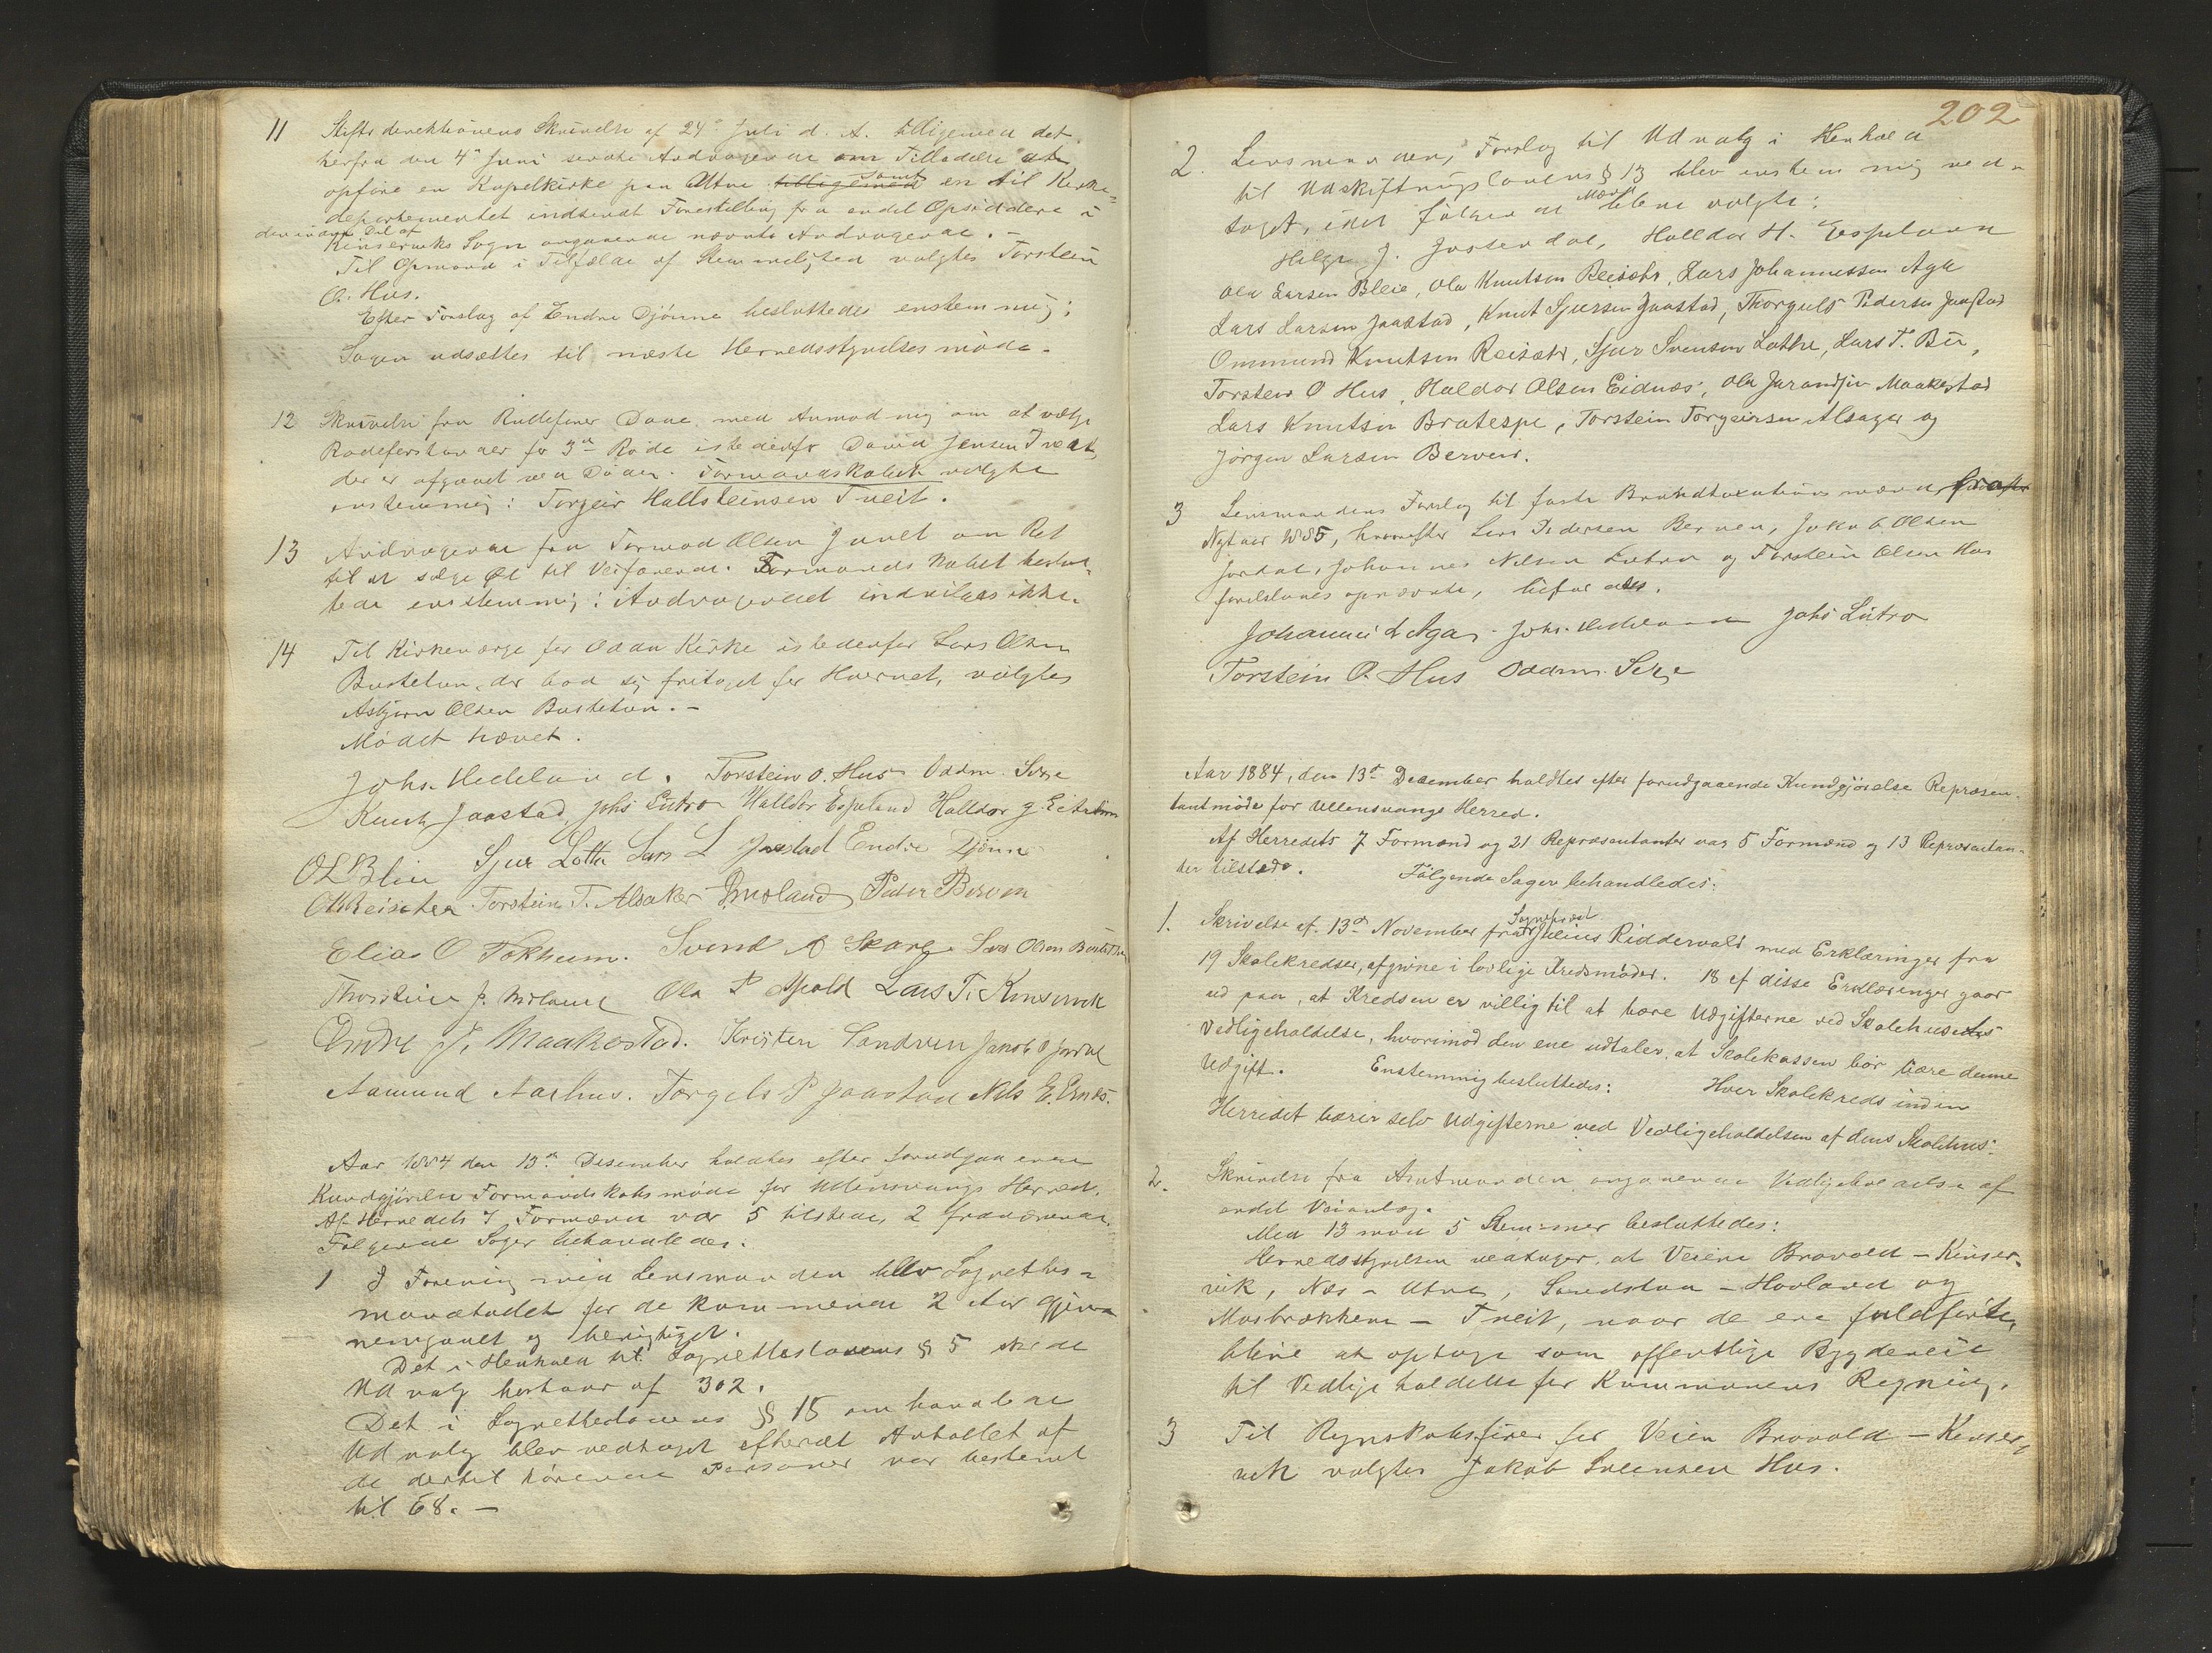 11 Stiftsdirektionens Skrivelse af 24de Juli d. A. tilligemed det
herfra den 4de Juni sendte Andragende om Tilladelse at
opføre en Kapelkirke paa Utne tilligemed samt en til Kirke-
departementet indsendt Forestilling fra endel Opsiddere i
den indre Del af
Kinserviks Sogn angaaende nævnte Andragende. -
Til Opmand i Tilfælde af Stemmelighed valgtes Torstein
O. Hus.
Efter Forslag af Endre Djønne besluttedes enstemmig:
Sagen udsættes til næste Herredsstyrelsesmøde.
12 Skrivelse fra Rodefører Dave med Anmodning om at vælge
Rodeforstander for 3die Rode istedenfor David Jensen Tveit,
der er afgaaet ved Døden. Formandskabet valgte
enstemmig: Torgeir Hallsteinsen Tveit.
13 Andragende fra Tormod Olsen Jaalt om Ret
til at sælge Øl til Veifarende. Formandskabet beslut-
tede enstemmig: Andragendet indvilges ikke.
14 Til Kirkeværge for Odda Kirke istedenfor Lars Olsen
Bustetun, der bad sig fritaget for Hvervet, valgtes
Asbjørn Olsen Bustetun. -
Mødet hævet.
Johs. Meeland. Torstein O. Hus Oddm. Sexe
Knut Jaastad, Johs Lutro Halldor Espeland Halldor J. Eitrheim
O L Bleie Sjur Lothe Lars L Jaastad Endre Djønne
O K Reisæter Torstein T. Alsaker Peder Berven
Elias O Tokheim. Svend A Skare Lars Olsen Bustetun
Thorstein J. Ola P Apold Lars T. Kinservik
Endre J. Maakestad. Kristen Sandven Jakob O Jordal
Aamund Aarhus. Torgils P Jaastad Nils E. Ernes.
Aar 1884 den 13de Desember holdtes efter forudgaaende
Kundgjørelse Formandskabsmøde for Ullensvangs Herred.
Af Herredets 7 Formænd var 5 tilstede, 2 fraværende.
Følgende Sager behandledes:
1 I Forening med Lensmanden blev Lagrettes-
mandstallet for de kommende 2 Aar gjen-
nemgaaet og berigtiget.
Det i Henhold til Lagretteslovens § 5 skede
Udvalg bestaar af 302.
Det i Lagretteslovens § 15 omhandlede
Udvalg blev vedtaget efterat Antallet af
de dertil hørende Personer var bestemt
til 68. -
202
2. Lensmandens Forslag til Udvalg i Henhold
til Udskiftningslovens § 13 blev enstemmig ved-
taget, idet følgende Mænd blev valgte:
Helge J. Jostendal, Halldor H. Espelann
Ola Larsen Bleie, Ola Knutsen Reisæter, Lars Johannessen Aga
Lars Larsen Jaastad, Knut Sjursen Jaastad, Thorguls Pedersen Jaastad
Ommund Knutsen Reisæter, Sjur Svensen Lothe, Lars T. Bu,
Torstein O Hus, Haldor Olsen Eidnes, Ola Jørandsen Maakestad
Lars Knutsen Bratespe, Torstein Torgeirsen Alsager og
Jørgen Larsen Berven.
3 Lensmandens Forslag til faste Brandtaxationsmænd fra
Nytaar 1885, hvorefter Lars Pedersen Berven, Jakob Olsen
Jordal, Johannes Nilsen Lutro og Torstein Olsen Hus
foresloges opnævnte, bifaldtes.
Johannes L Aga. Johs. Meeland Johs Lutro
Torstein O. Hus Oddm. Sexe
Aar 1884, den 13de December holdtes efter forudgaaende Kundgjørelse Repræsen-
tantmøde for Ullensvangs Herred.
Af Herredets 7 Formænd og 21 Repræsentanter var 5 Formænd og 13 Repræsentan-
ter tilstede. Følgende Sager behandledes:
1. Skrivelse af 13de November fra Sogneprest Julius Riddervold med Erklæringer fra
19 Skolekredser, afgivne i lovlige Kredsmøder. 18 af disse Erklæringer gaar
ud paa, at Kredsen er villig til at bære Udgifterne ved Skolehusets
Vedligeholdelse, hvorimod den ene udtaler, at Skolekassen bør bære denne
Udgift. Enstemmig besluttedes: Hver Skolekreds inden
Herredet bærer selv Udgifterne ved Vedligeholdelsen af dens Skolehus.
2. Skrivelse fra Amtmanden angaaende Vedligeholdelse af
endel Veianlæg.
Med 13 mod 5 Stemmer besluttedes:
Herredsstyrelsen vedtager, at Veiene Bravold - Kinser-
vik, Næs - Utne, Sandstøa - Hovland og
Mosbrækkene - Tveit, naar de ere fuldførte,
blive at optage som offentlige Bygdeveie
til Vedligeholdelse for Kommunens Regning.
3 Til Regnskabsfører for Veien Bravold - Kinser-
vik valgtes Jakob Svensen Hus.